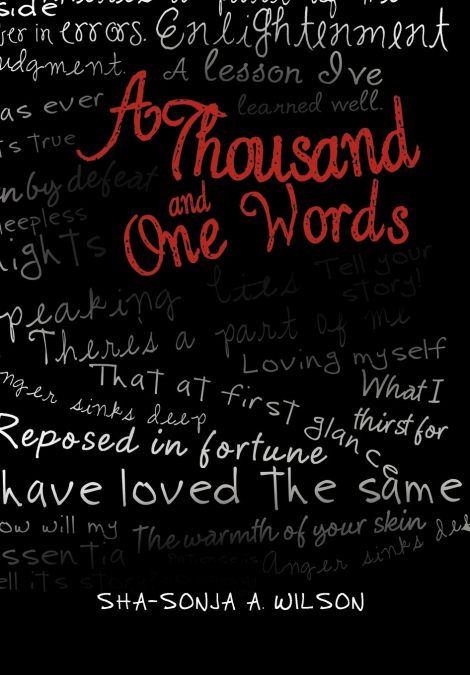 side
er in errors. Enlightenment
udgment. A lesson I've
as ever learned well.
A
Thousand
's true
n by defeat
and
eepless
One Words
ights
Tell your
story!
peaking lies
There's a part of me
Loving myself
That at first glance
What I
nger sinks deep
thirst for
Reposed in fortune
have loved the same
ow will my The warmth of your skin
essentia Patience is Anger sinks
ell it's story
SHA-SONJA A. WILSON